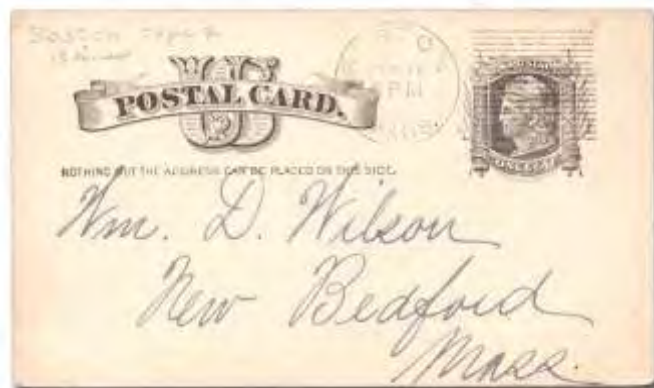 Boston Type
US
POSTAL CARD.
NOTHING BUT THE ADDRESS CAN BE PLACED ON THIS SIDE.
Wm. D. Wilson
New Bedford
Mass.
PM
ONE CENT